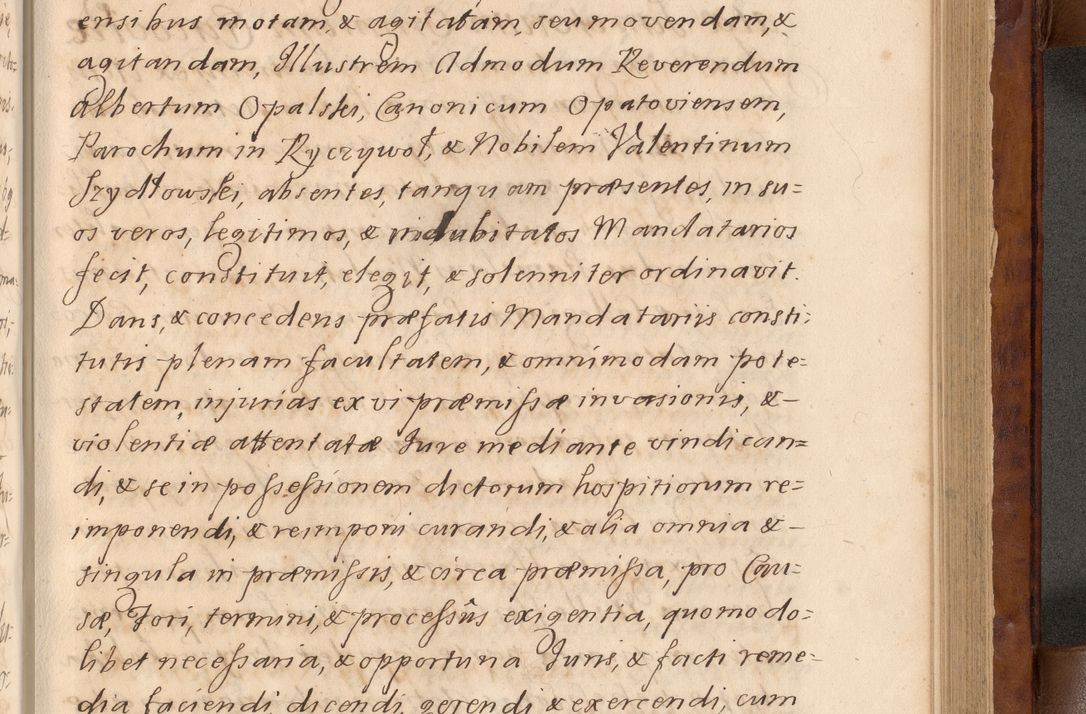 ensibus motam, & agitatam, seu movendam, &
agitandam, Illustrem Admodum Reverendum
Albertum Opalski, Canonicum Opatoviensem,
Parochum in Ryczywoł, & Nobilem Valentinum
Szydłowski, absentes, tanquam præsentes, in su=
os veros, legitimos, & indubitatos Mandatarios
fecit, constituit, elegit, & solenniter ordinavit.
Dans, & concedens præfatis Mandatariis consti=
tutis plenam facultatem, & omnimodam pote=
statem, injurias ex vi præmissæ invasionis, & –
violentiæ attentatæ Iure mediante vindican=
di, & se in possessionem dictorum hospitiorum re=
imponendi, & reimponi curandi, & alia omnia & –
singula in præmissis, & circa præmissa, pro Cau=
sæ, Fori, termini, & processûs exigentia, quomodo=
libet necessaria, & opportuna Iuris, & facti reme=
dia faciendi, dicendi, gerendi & exercendi, cum